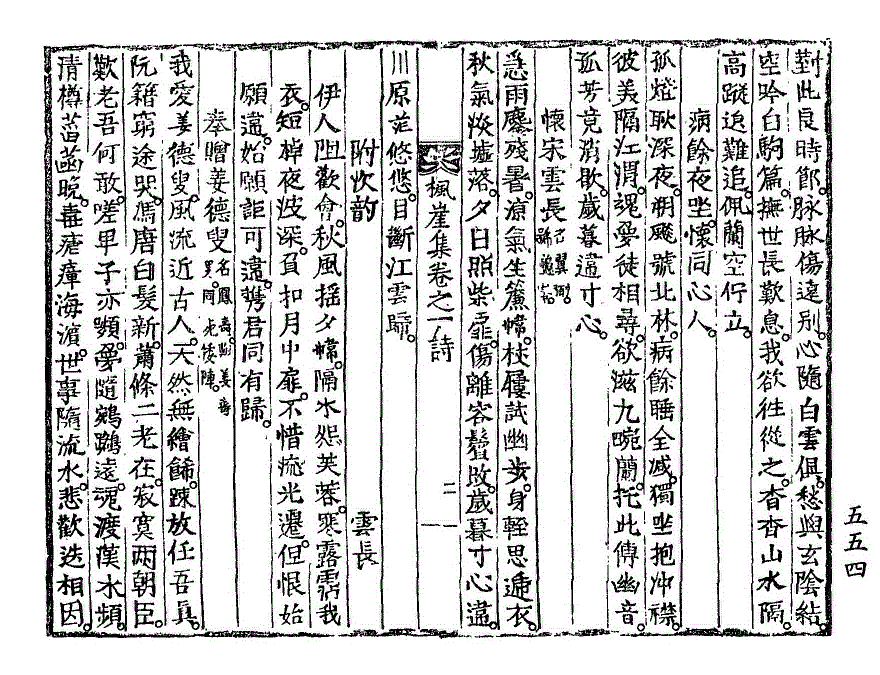 對此良時節脉脉傷遠別心隨白雲俱愁與玄陰結
空吟白駒篇撫世長歎息我欲往從之杳杳山水隔
高蹤追難追佩蘭空佇立
病餘夜坐懷同心人
孤燈耿深夜朔颷號北林病餘睡全减獨坐抱冲襟
彼美隔江渭魂夢徒相尋欲滋九畹蘭托此傳幽音
孤芳竟消歇歲暮違寸心
懷宋雲長
急雨麈殘暑凉氣生簾幃杖屨試幽步身輕思遞衣
秋氣惔墟落夕日照柴扉傷離容鬢改歲暮寸心違
楓崖集卷之一 詩 二一
川原茫悠悠目斷江雲歸
附次韵 雲長
伊人阻歡會秋風搖夕幃隔水怨芙蓉寒露霑我
衣短棹夜波深負扣月中扉不惜流光遷但恨始
願違始願詎可違携君同有歸
奉贈姜德叟
我愛姜德叟風流近古人天然無繪餙踈放任吾眞
阮籍窮途哭馮唐白髮新蕭條二老在寂寞兩朝臣
歎老吾何敢嗟卑子亦顰夢隨鵷鷺遠魂渡漢水頻
清樽菡萏晩毒瘧瘴海濵世事隨流水悲歡迭相因
五五四